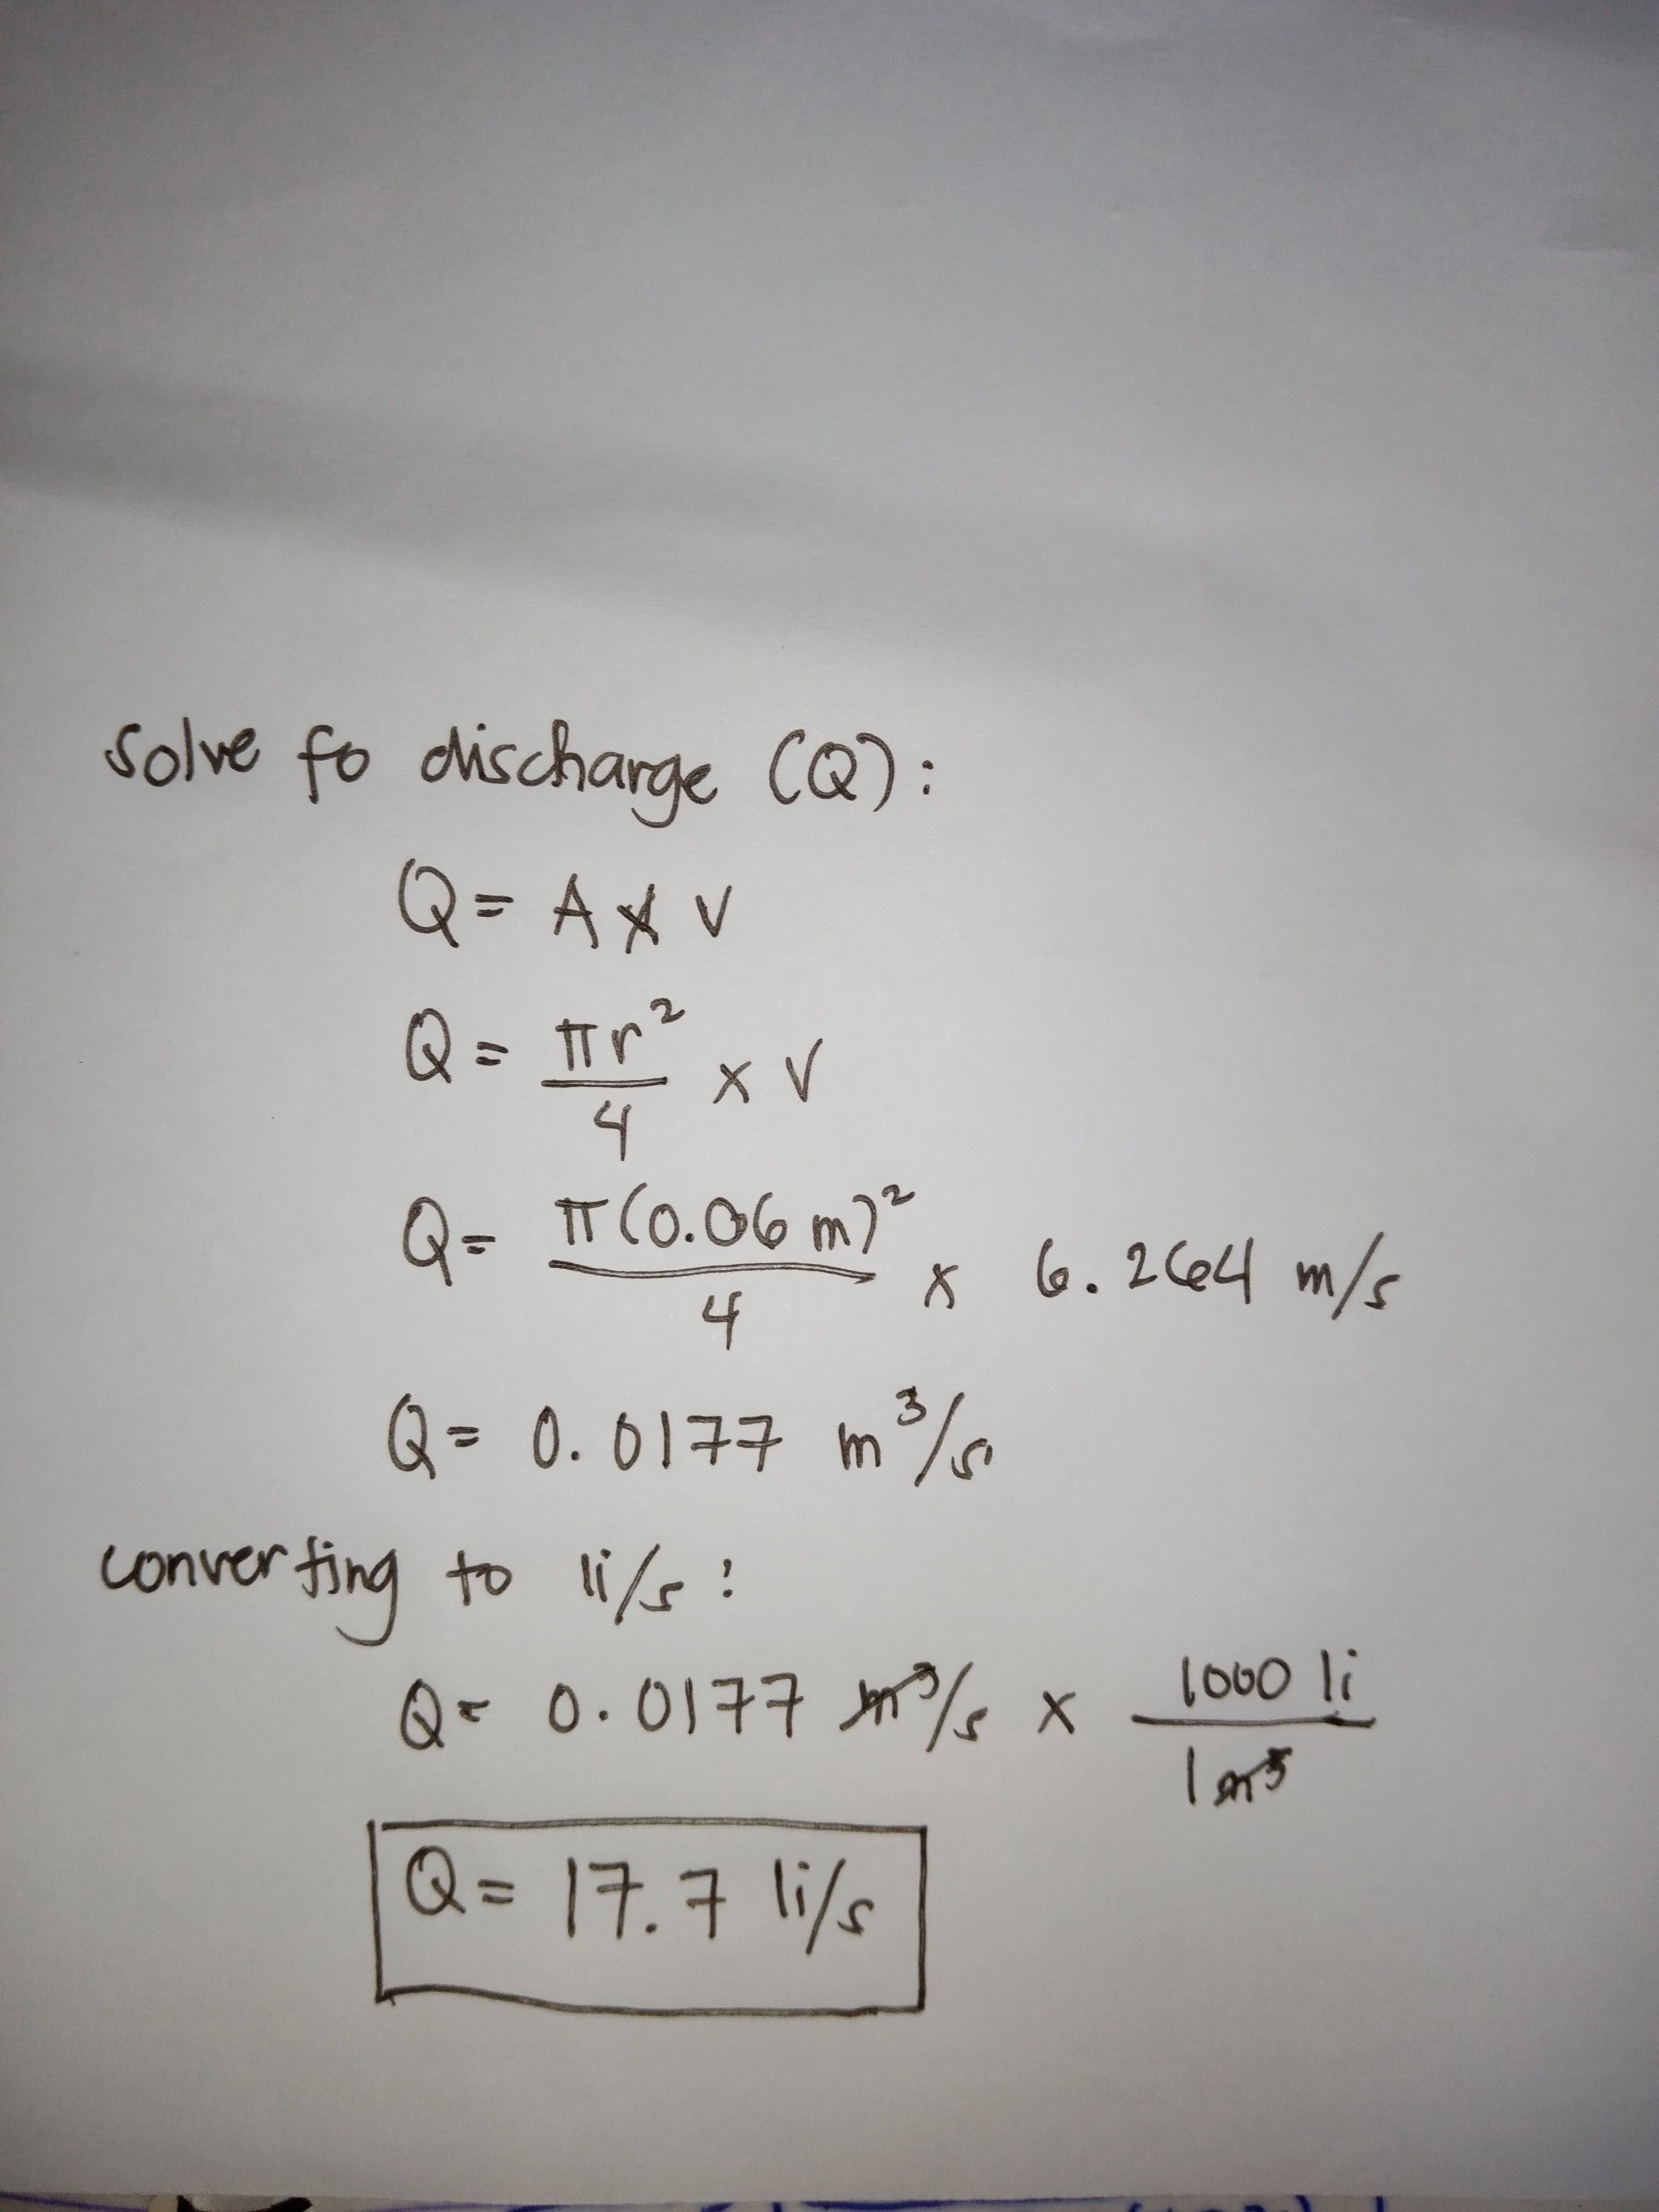 Solve fo discharge (Q):
Q = A x V
Q = πr²/4 x V
Q = π(0.06 m)²/4 x 6.264 m/s
Q = 0.0177 m³/s
converting to li/s:
Q = 0.0177 m³/s x 1000 li/1 m³
Q = 17.7 li/s